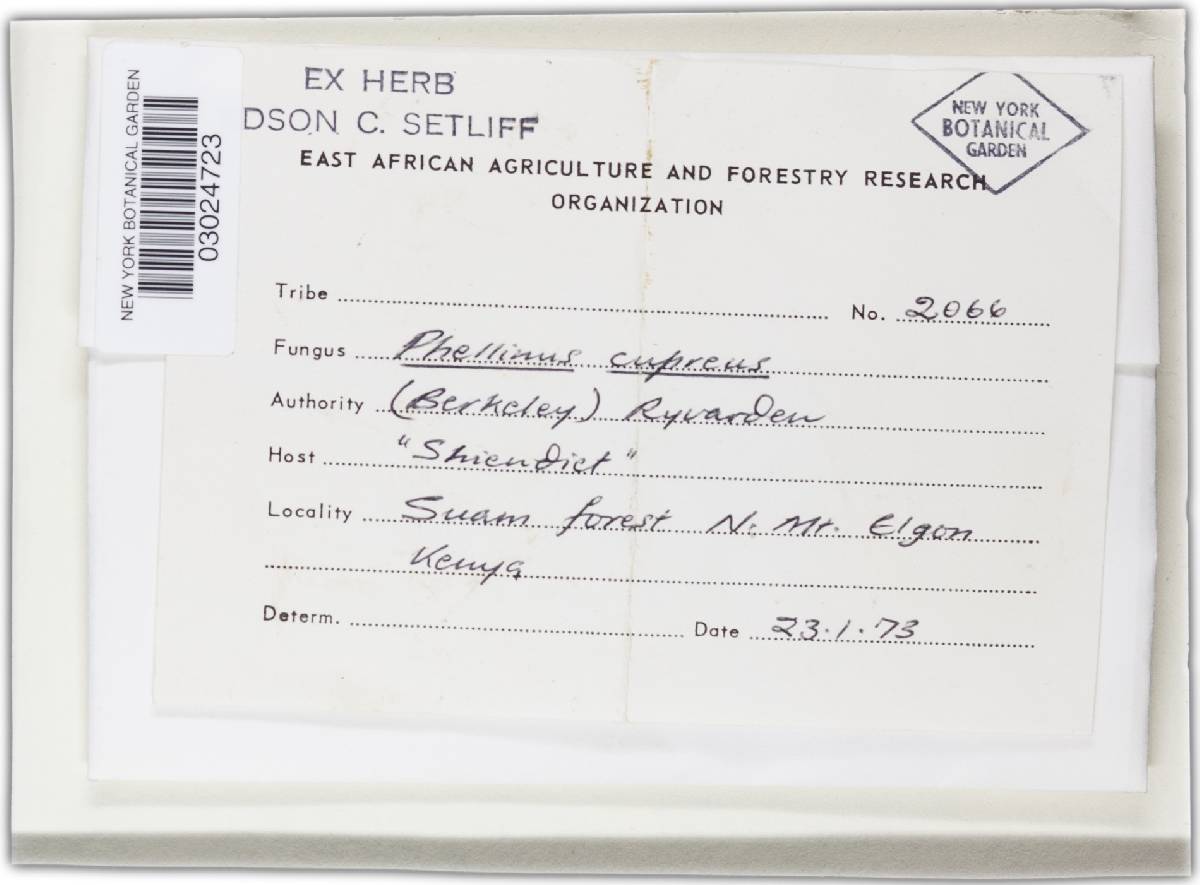 NEW YORK BOTANICAL GARDEN
03024723
EX HERB
DSON C. SETLIFF
NEW YORK
BOTANICAL
GARDEN
EAST AFRICAN AGRICULTURE AND FORESTRY RESEARCH
ORGANIZATION
Tribe No. 2066
Fungus Phellinus cupreus
Authority (Berkeley) Ryvarden
Host "Shiendict"
Locality Suam forest N. Mt. Elgon
Kenya
Determ. Date 23.1.73